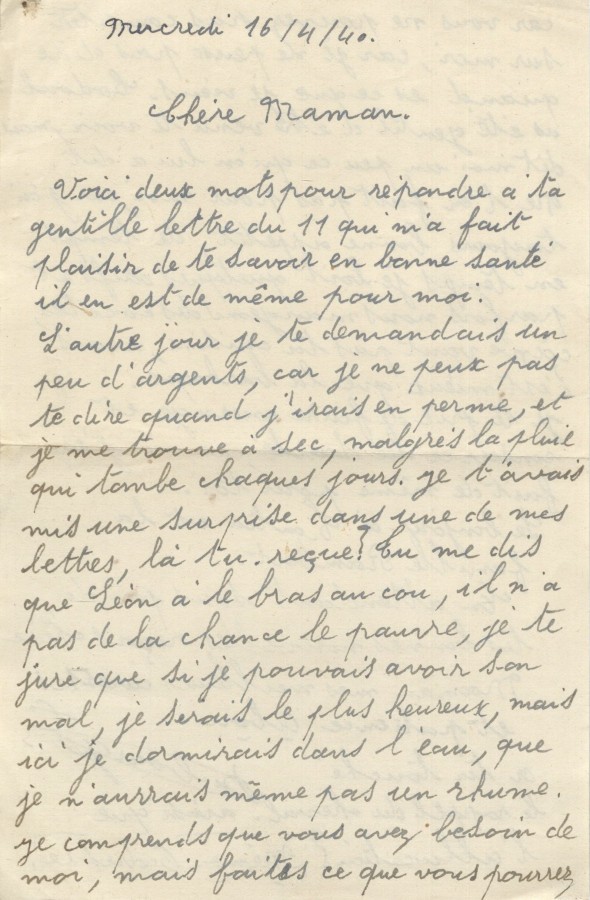 Mercredi 16/4/40.
Chère Maman.
Voici deux mots pour répondre à ta
gentille lettre du 11 qui m'a fait
plaisir de te savoir en bonne santé
il en est de même pour moi.
L'autre jour je te demandais un
peu d'argents, car je ne peux pas
te dire quand j'irais en perme, et
je me trouve à sec, malgrés la pluie
qui tombe chaques jours. je t'avais
mis une surprise dans une de mes
lettres, là tu reçue? Tu me dis
que Léon à le bras au cou, il n'a
pas de la chance le pauvre, je te
jure que si je pouvais avoir son
mal, je serais le plus heureux, mais
ici je dormirais dans l'eau, que
je n'aurrais même pas un rhume.
je comprends que vous avez besoin de
moi, mais faites ce que vous pourrez